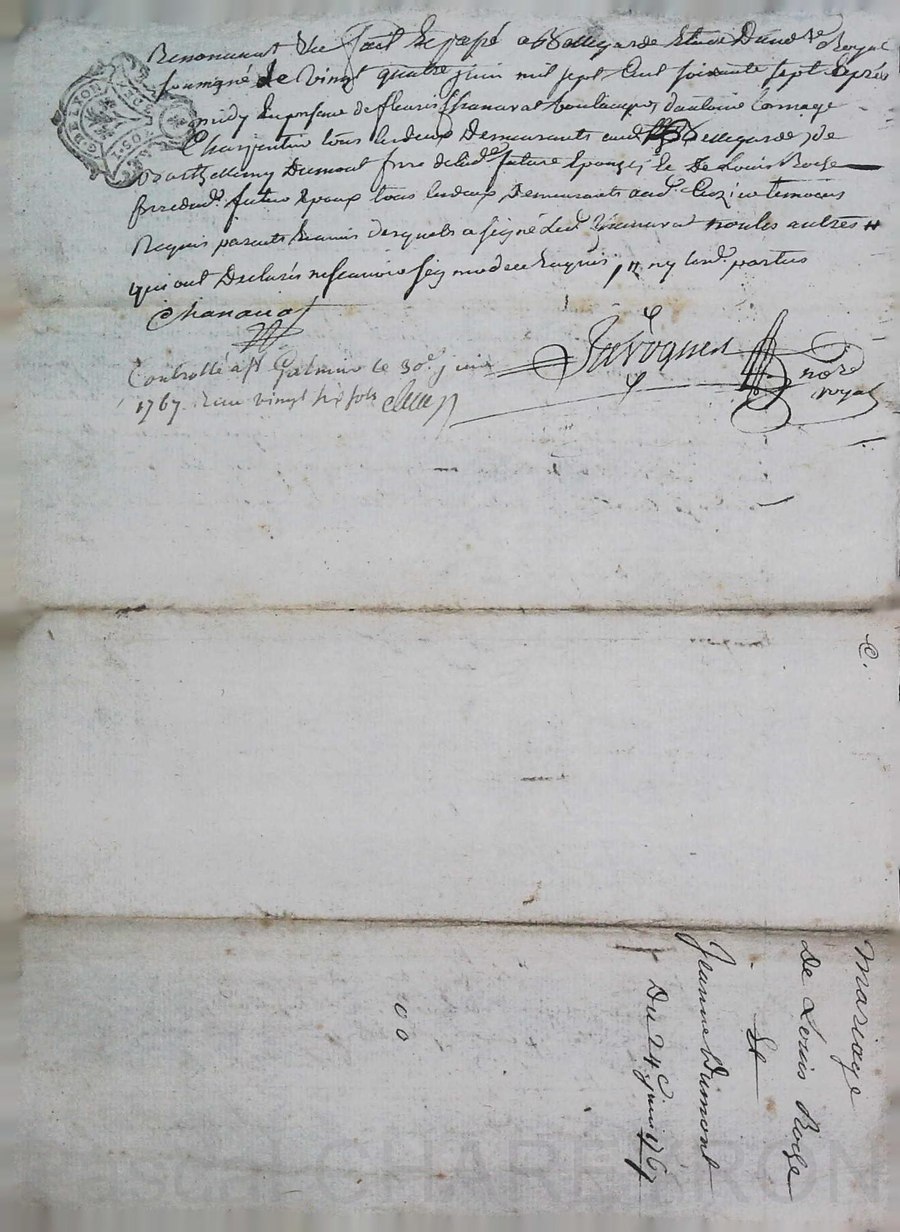 Renonceant &c fait et passé a Bellegarde Etude Dud. Ne Royal
soussigné le vingt quatre juin mil sept Cent soixante sept apres
midy En presence de fleuris Chanavat boulanger, d'antoine
Charpentier tous les deux Demeurants aud. Bellegarde, de
Barthellemy Dumont frere de lad. future Epouze, et De Louis Roze
frere dud. futur Epoux tous les deux Demeurants aud. Cuzieu temoins
Requis parents et amis desquels a signé led. Chanavat non les autres
qui ont Declarés ne scavoir signer de ce Enquis, ny lesd. parties
Chanavat
Controllé a St Galmier le 30e juin
1767. Reçu vingt six sols
nore
royal
Mariage
De Louis Roze
Et
Jeanne Dumont
Du 24e juin 1767
GEN DE LYON
CHAREYRON